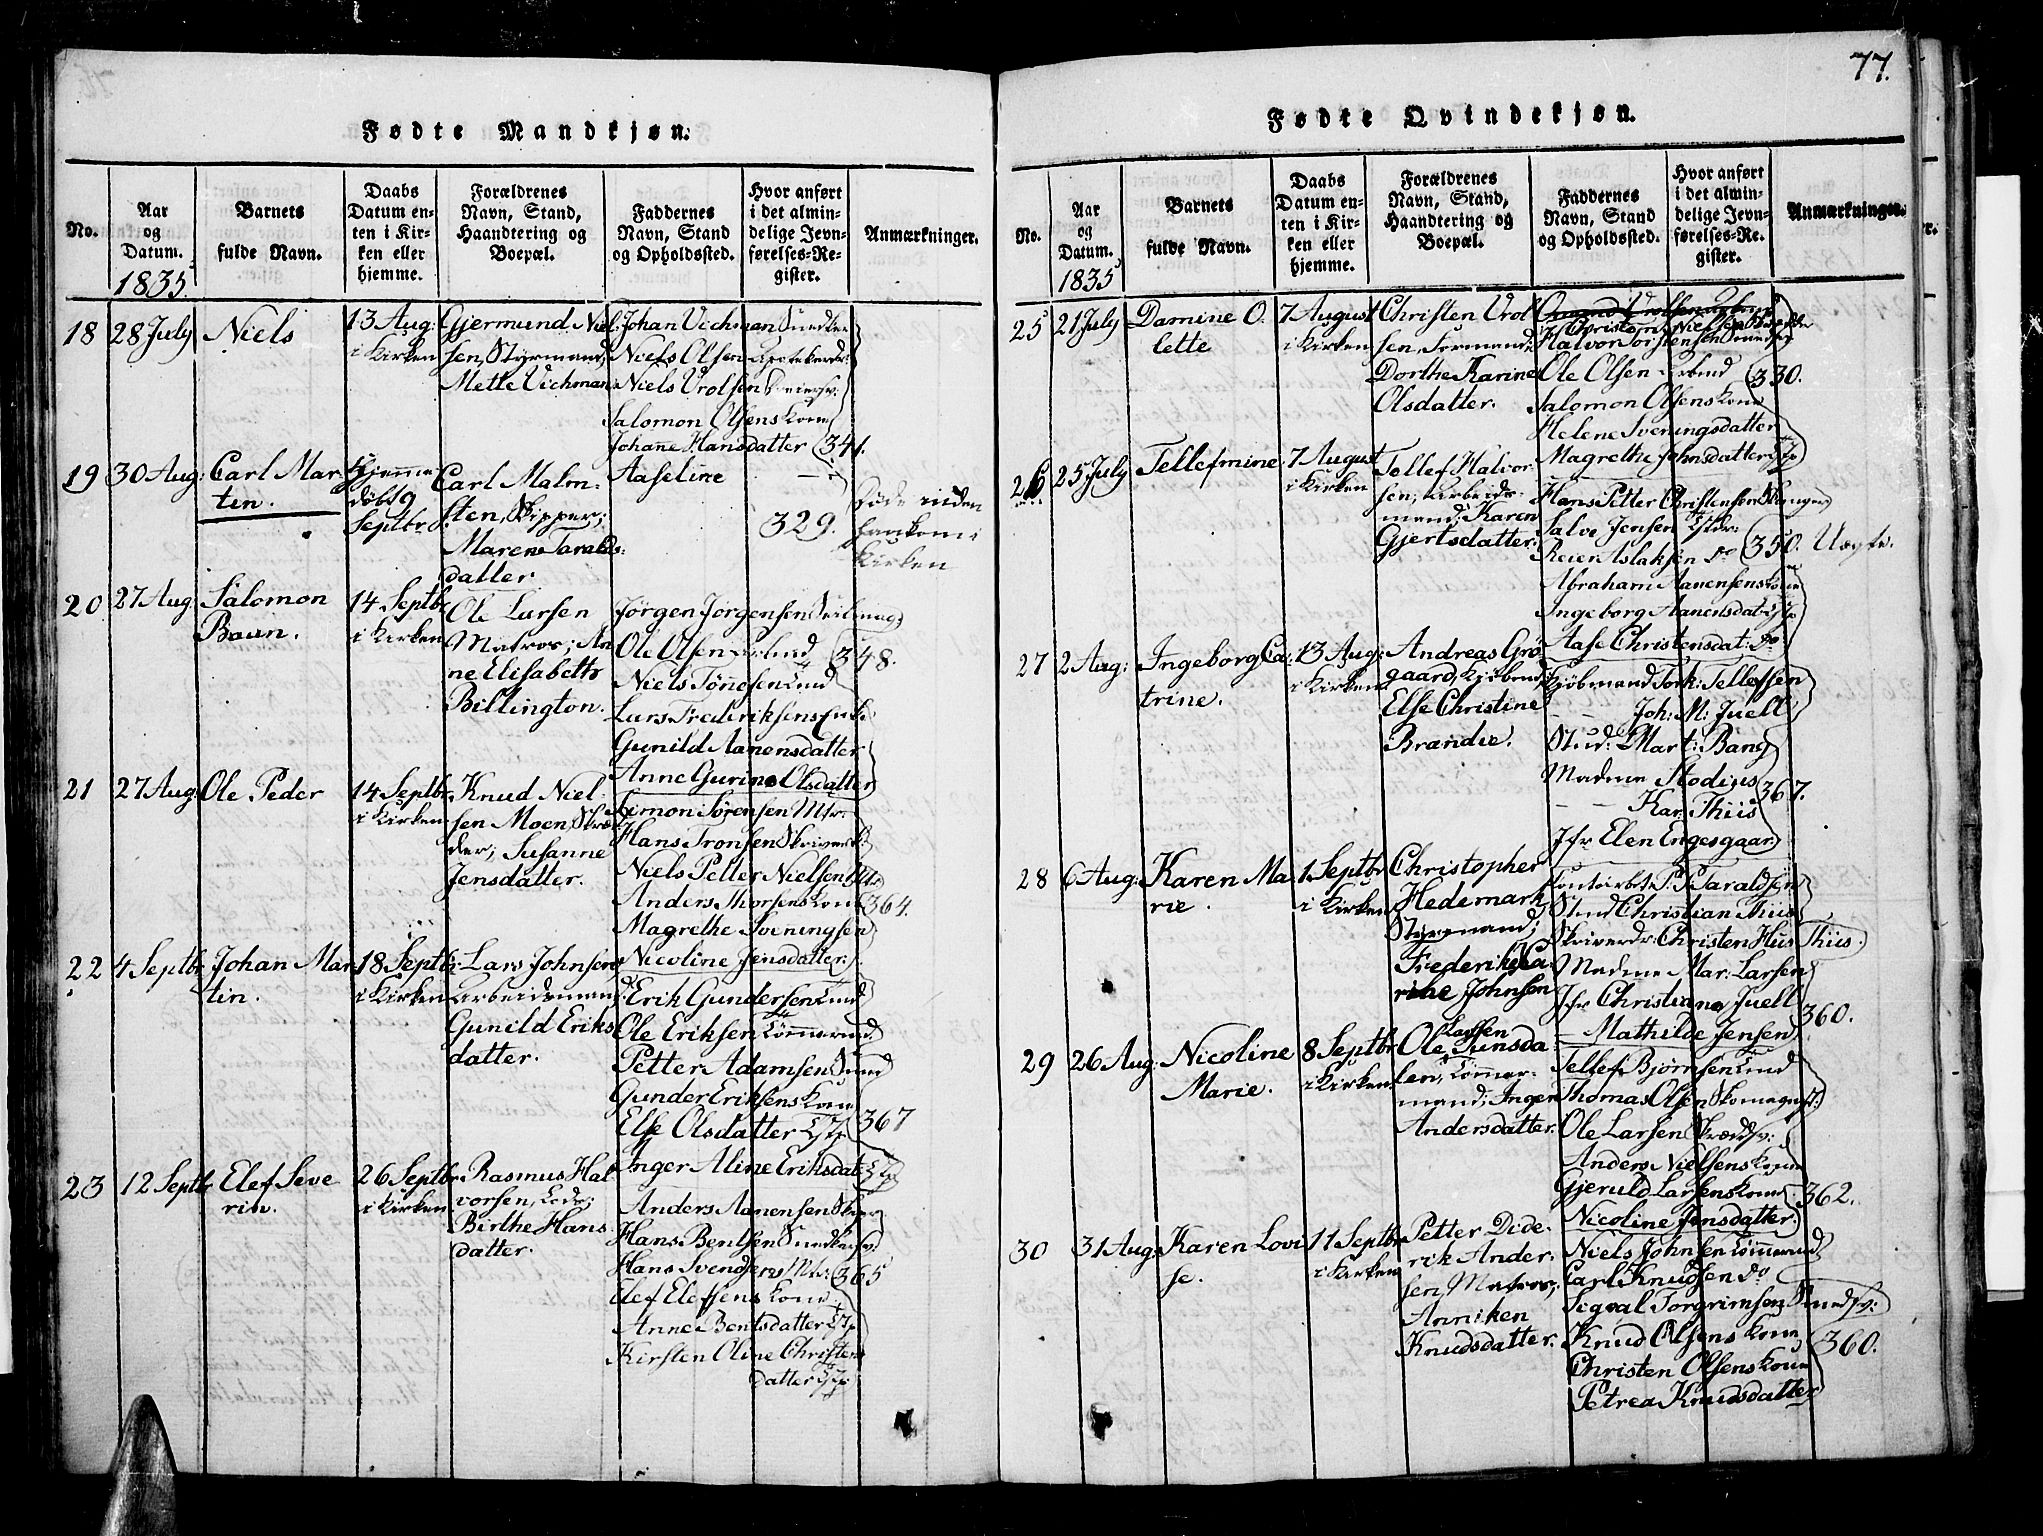 77.
Fødte Mandkjøn.
No.
Aar
og
Datum.
1835
Barnets
fulde Navn.
Daabs
Datum en-
ten i Kir-
ken eller
hjemme.
Forældrenes
Navn, Stand,
Haandtering og
Boepæl.
Faddernes
Navn, Stand
og Opholdssted.
Hvor anført
i det almin-
delige Jevn-
førelses-Re-
gister.
Anmærkninger.
18
28 July
Niels
13 Aug:
i Kirken
Gjermund Niel-
sen, Styrmand;
Mette Vichman
Johan Vichman
Niels Olsen
Niels Vrolsen
Salomon Olsens Kone
Johanne Hansdatter
341.
19
30 Aug:
Carl Mar
tin.
Hjemme
døbt 9
Septbr
Carl Malm-
sten, Skipper;
Maren Taralds-
datter
Aaseline
329.
døde inden
han kom i
Kirken
20
27 Aug:
Salomon
Baun.
14 Septbr
i Kirken
Ole Larsen
Matros; An
ne Elisabeth
Billington.
Jørgen Jørgensen Seilmag:
Ole Olsen
Niels Tønnesen
Lars Frederiksens Enke
Gunild Aanonsdatter
Anne Gurine Olsdatter
348.
21
27 Aug:
Ole Peder
14 Septbr
i Kirken
Knud Niel-
sen Moen, Skræ
der; Susanne
Jensdatter.
Simon Sørensen Mtr:
Hans Tronsen Skriver
Niels Petter Nielsen Mtr
Anders Thorsens Kone
Magrethe Sveningsen
Nicoline Jensdatter.
364.
22
4 Septbr
Johan Mar
tin.
18 Septbr
i Kirken
Lars Johnsen
arbeidsmand
Gunild Eriks
datter.
Erik Gundersen
Ole Eriksen Tømmermd
Petter Adamsen
Gunder Eriksens Kone
Else Olsdatter
Inger Aline Eriksdat:
367
23
12 Septbr
Elef Seve
rin.
26 Septbr
i Kirken
Rasmus Hal
vorsen, Lods;
Birthe Hans
datter.
Anders Aanensen
Hans Bentsen
Hans Svendsen Mtr:
Elef Elefsens Kone
Anne Bentsdatter
Kirsten Oline Christens
datter
365
Fødte Qvindekjøn.
No.
Aar
og
Datum.
1835
Barnets
fulde Navn.
Daabs
Datum en-
ten i Kir-
ken eller
hjemme.
Forældrenes
Navn, Stand,
Haandtering og
Boepæl.
Faddernes
Navn, Stand
og Opholdssted.
Hvor anført
i det almin-
delige Jevn-
førelses-Re-
gister.
Anmærkninger.
25
21 July
Damine O.
lette
7 August
i Kirken
Christen Vrol
sen, Formand;
Dorthe Karine
Olsdatter.
Halvor Torstensen
Ole Olsen
Salomon Olsens Kone
Helene Sveningsdatter
Magrethe Johnsdatter
330.
26
25 July
Tellefmine
7 August
i Kirken
Tollef Halvor
sen, arbeids-
mand; Karen
Gjertsdatter.
Hans Petter Christensen
Salve Jensen
Reier Aslaksen do
Abraham Aanensens Kone
Ingeborg Aanensdat:
Aase Christensdat: do
350.
Uægte.
27
2 Aug:
Ingeborg Ca-
trine.
13 Aug:
i Kirken
Andreas Grø
gaard, Kjøbmd;
Else Christine
Brandie.
Kjøbmand Tork: Tellefsen
— Joh: M: Juell
Stud: Mart: Bang
Madme Stodius
— Kar: Thiis
Jfr Elen Engesgaar
367.
28
6 Aug:
Karen Ma
rie.
1 Septbr
i Kirken
Christopher
Hedemark
Styrmand;
Frederike Ca
rine Johnsen
P. Taraldsen
Stud Christian Thiis
Skriverdr: Christen Hus Thiis
Madme Mar: Larsen
Jfr Christiane Juell
— Mathilde Jensen
360.
29
26 Aug:
Nicoline
Marie.
8 Septbr
i Kirken
Ole Larsen Tunsda
len, Tømmer-
mand; Inger
Andersdatter.
Tellef Bjørnsen
Thomas Olsen Skomagersv:
Ole Larsen Skrædsv:
Anders Nielsens Kone
Gjeruld Larsens Kone
Nicoline Jensdatter.
362.
30
31 Aug:
Karen Lovi
se.
11 Septbr
i Kirken
Petter Dide-
rik Ander-
sen, Matros;
Anniken
Knudsdatter.
Niels Johnsen Tømmermd
Carl Knudsen do
Sigval Torgrimsen Smedsv:
Knud Olsens Kone
Christen Olsens Kone
Petrea Knudsdatter
360.